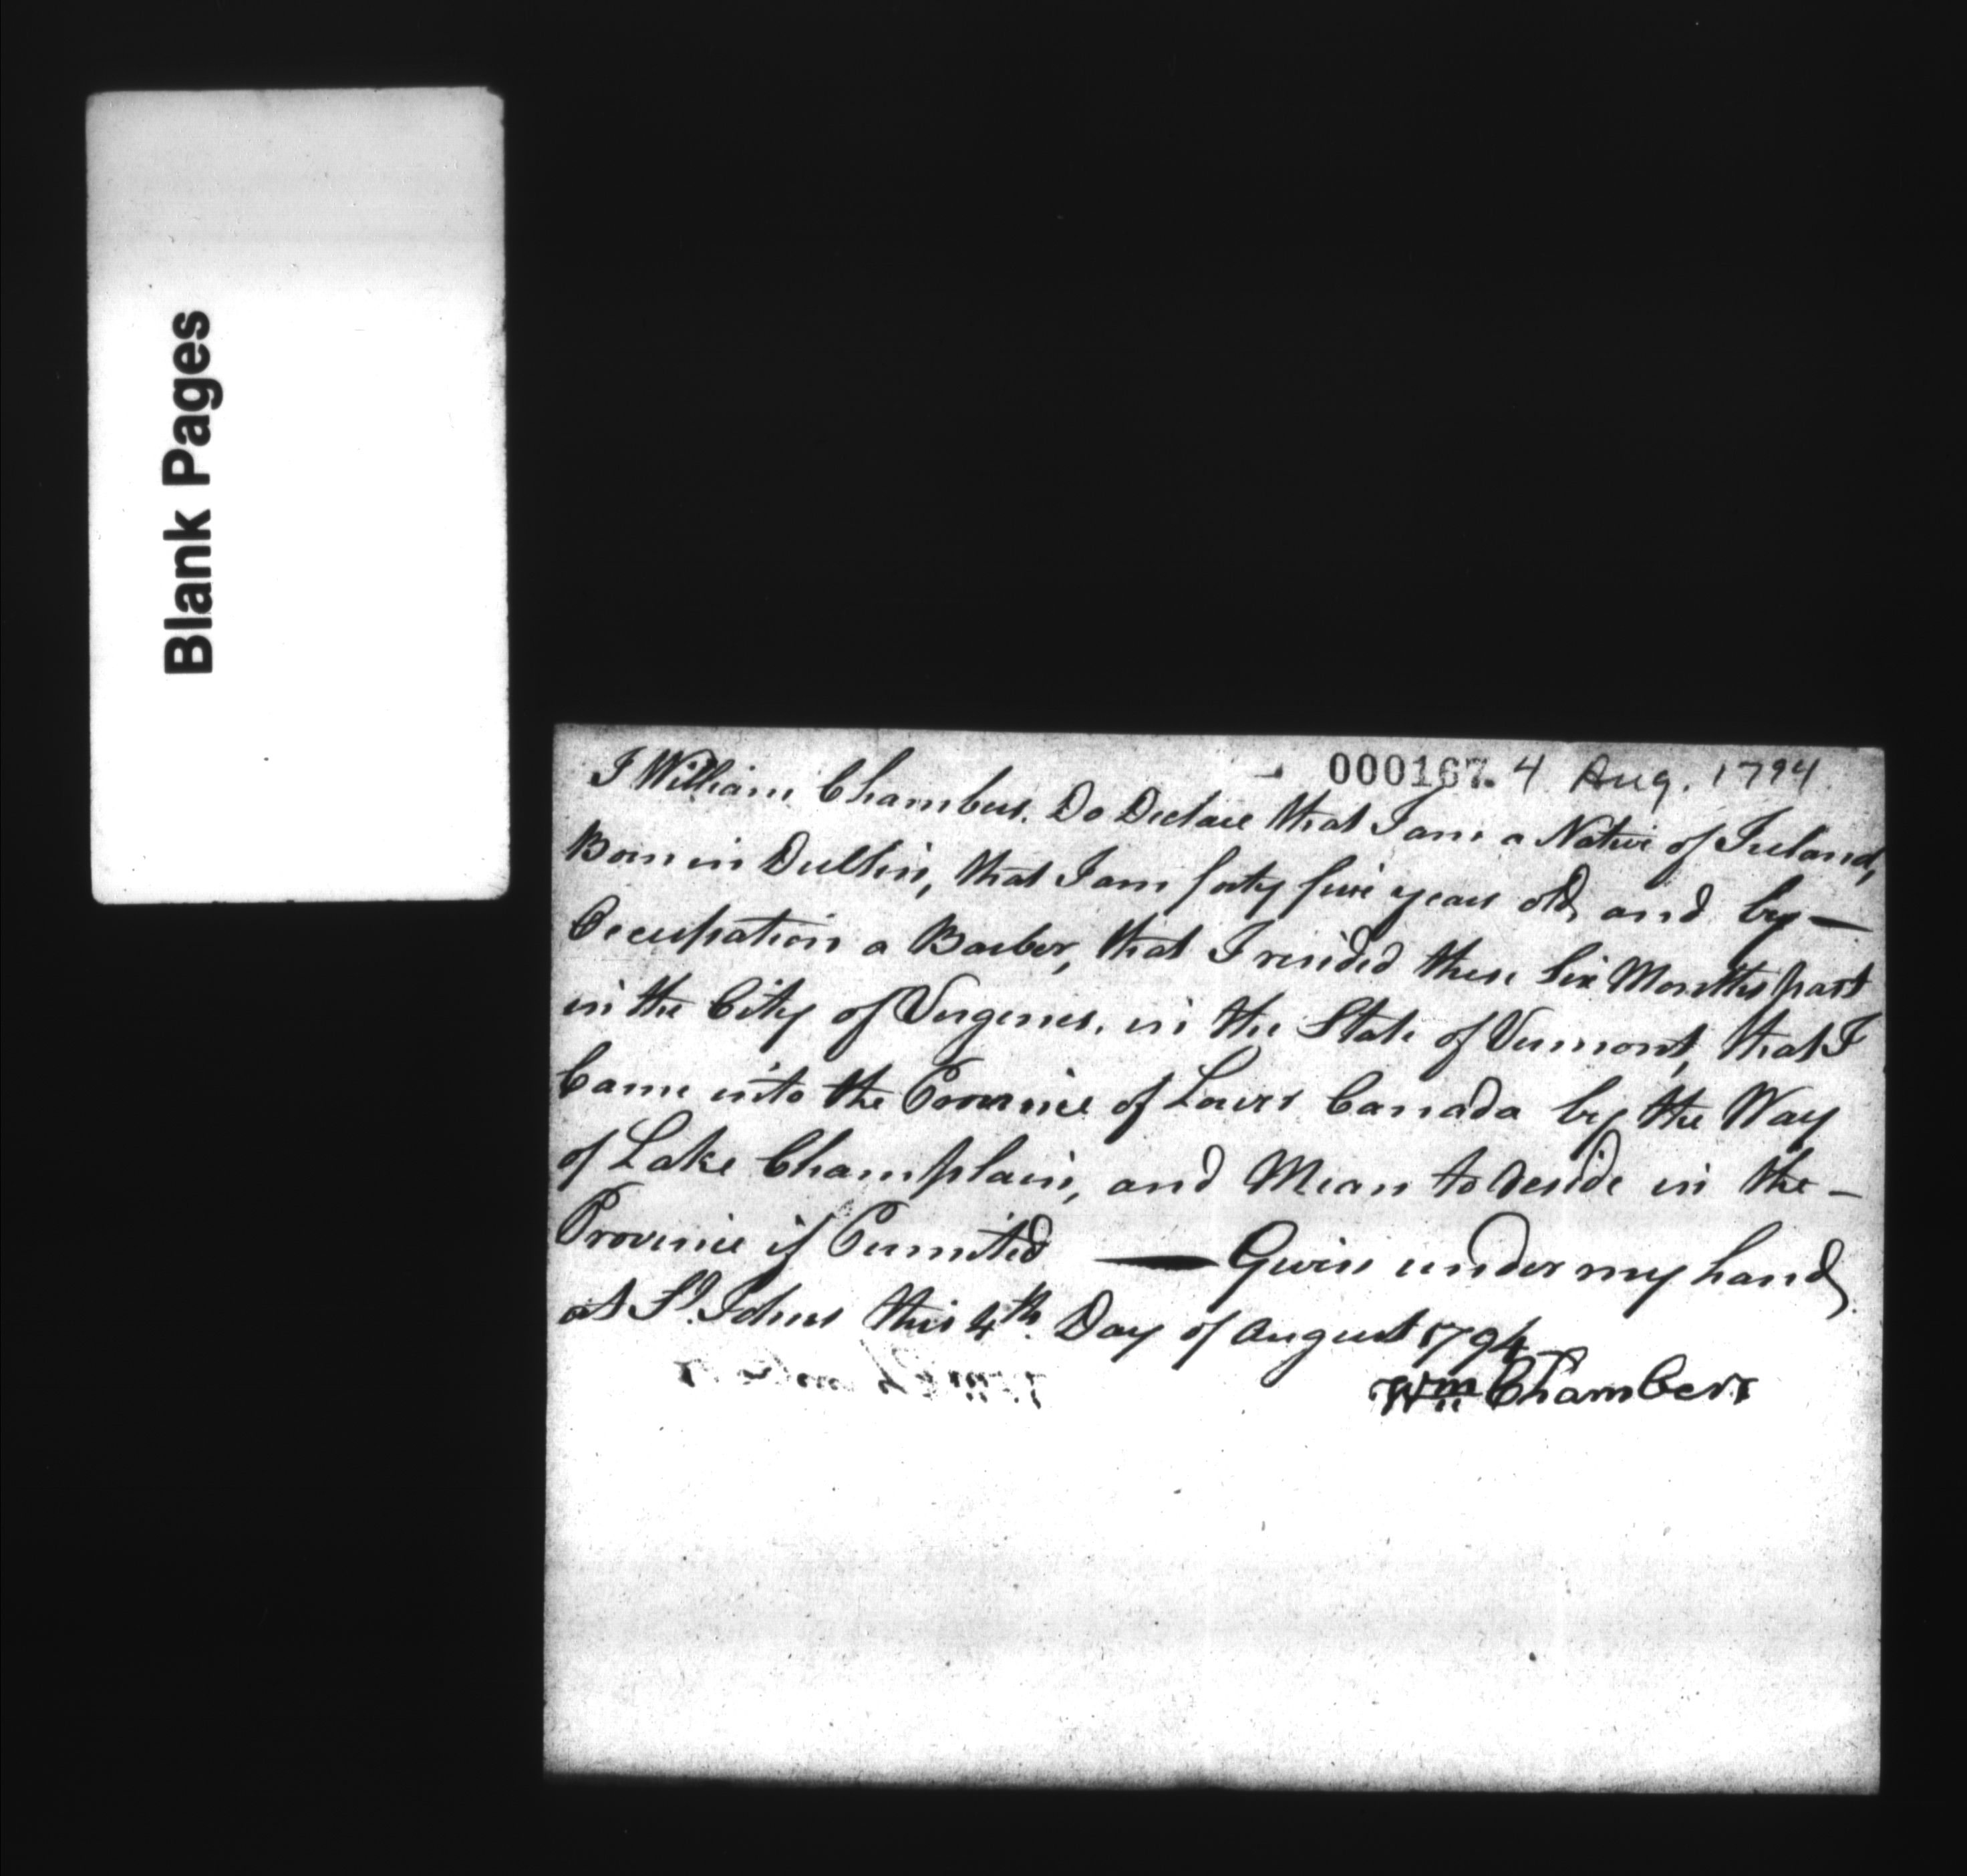 Blank Pages
000167. 4 Aug. 1794
I William Chambers. Do Declare that I am a Native of Ireland,
Born in Dublin, that I am forty five years old, and by —
Occupation a Barber, that I resided these Six Months past
in the City of Vergenes, in the State of Vermont, that I
Came into the Province of Lower Canada by the Way
of Lake Champlain, and Mean to Reside in the —
Province if Permited — Given under my hand
at St. Johns this 4th. Day of August 1794
Wm Chambers